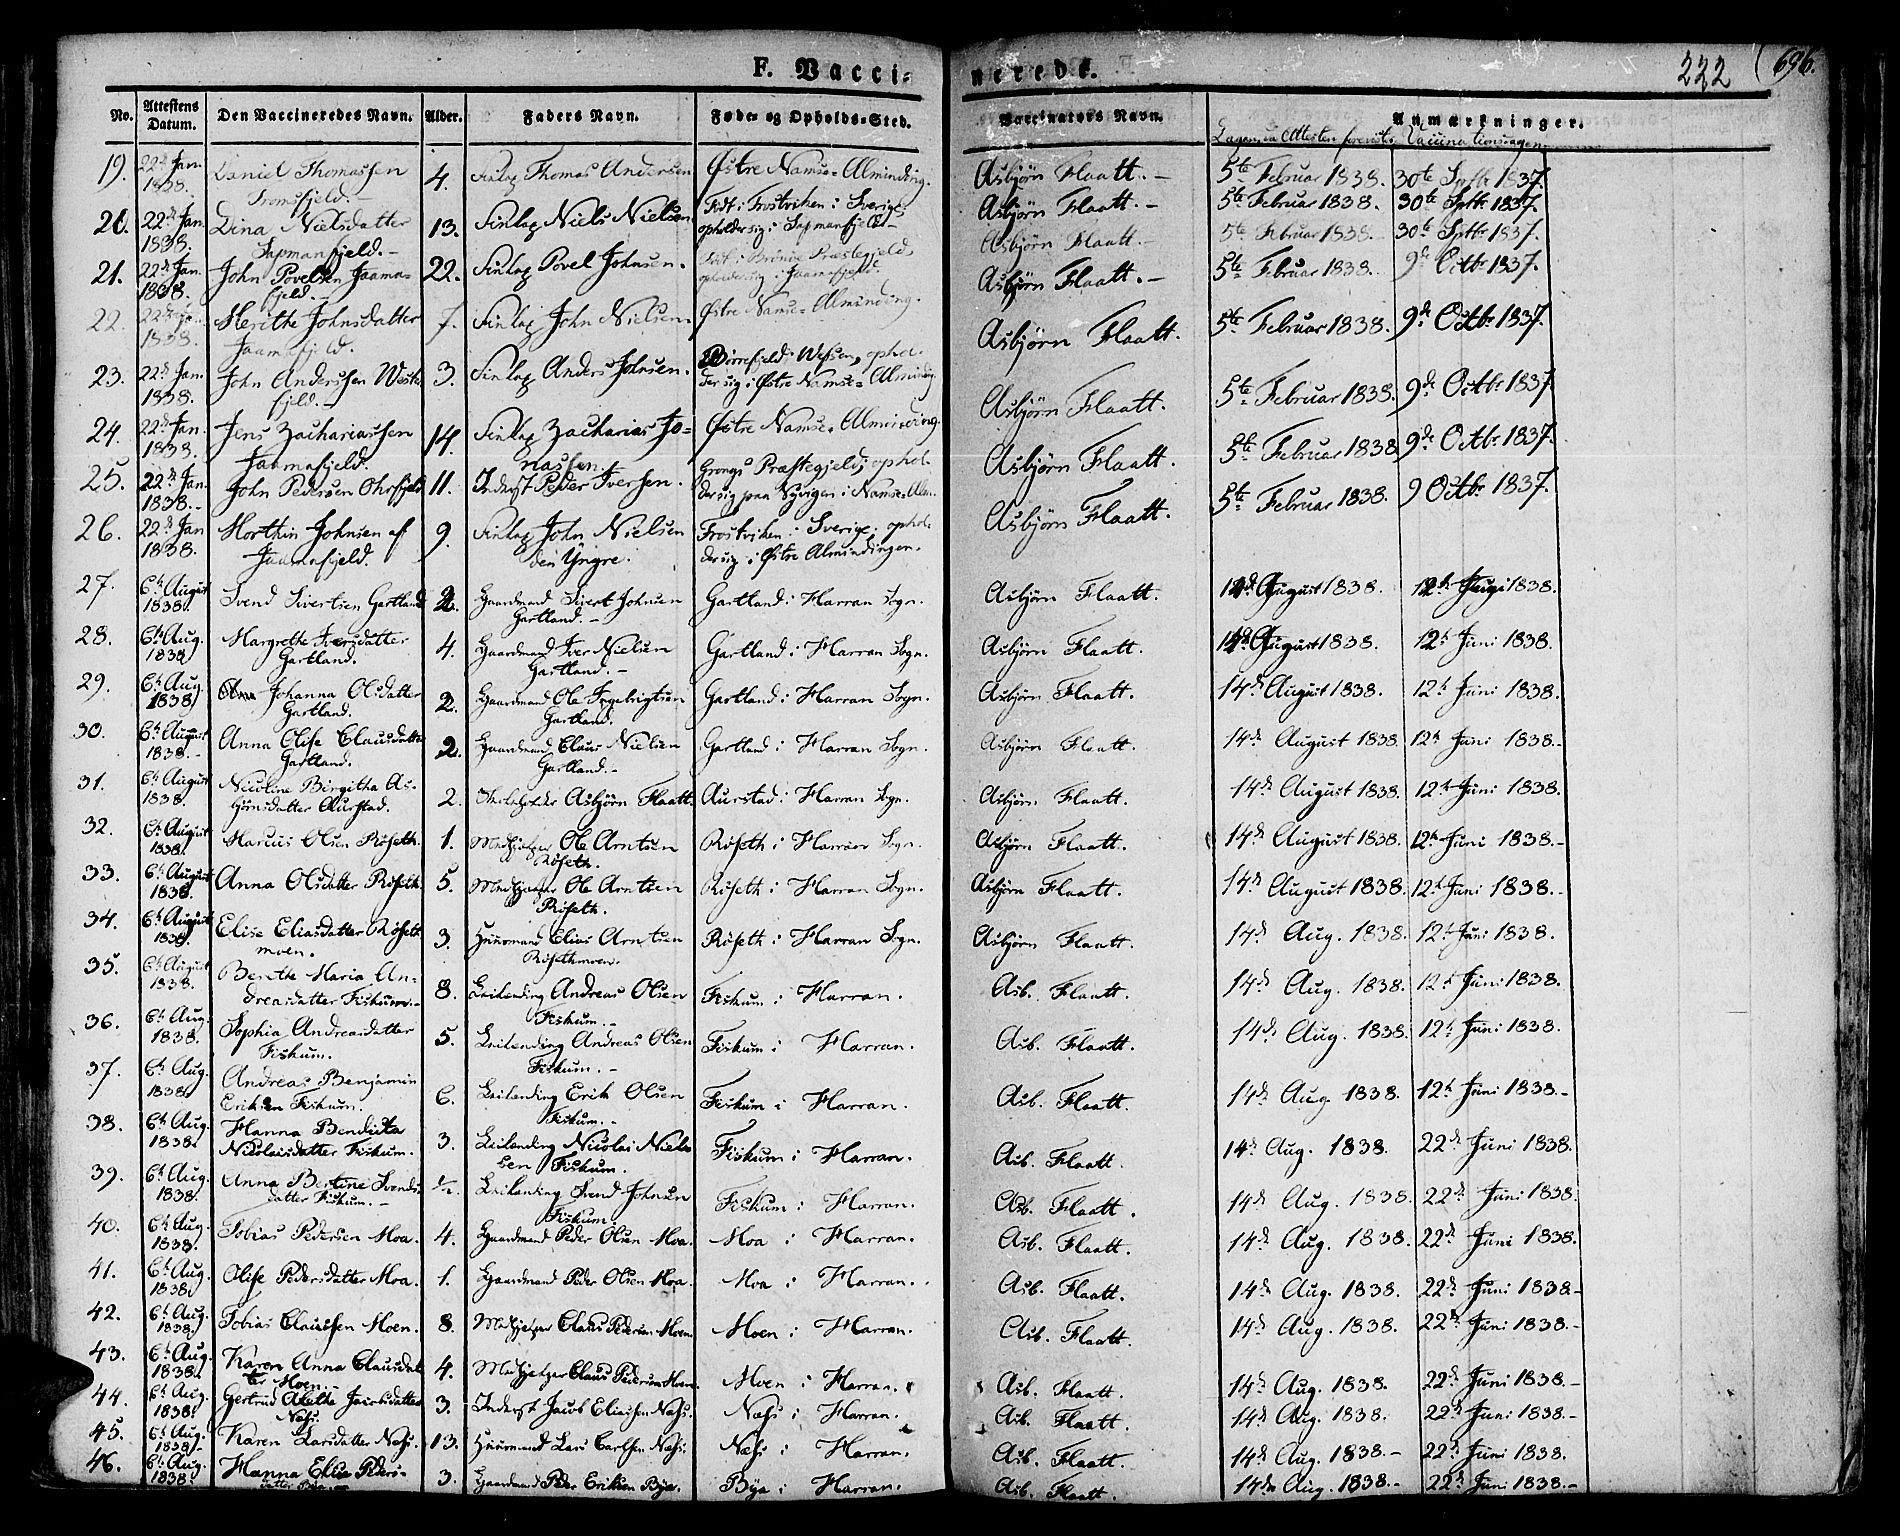 F. Vaccinerede.
222 (696.
No. Attestens Datum. Den Vaccineredes Navn. Alder. Faders Navn. Føde- og Opholds-Sted. Vaccinators Navn. Anmærkninger.
Dagen da Attesten forevistes Vaccinationsdagen
19. 22de Jan. 1838. Daniel Thomassen 4. Finlap Thomas Andersen Østre Namse-Alminding. Asbjørn Flaatt. 5te Februar 1838. 30te Septbr 1837.
20. 22de Jan. 1838. Dina Nielsdatter 13. Finlap Niels Nielsen Født i Frostviken i Sverige, opholder sig i Asbjørn Flaatt. 5te Februar 1838. 30te Septbr 1837.
Asbjørn Flaatt. 5te Februar 1838. 30te Septbr 1837.
21. 22de Jan. 1838. John Povelsen Jaamafjeld. 22. Finlap Povel Johnsen. Præstegjeld, opholder sig i Jaamafjeld. Asbjørn Flaatt. 5te Februar 1838. 9de Octbr 1837.
22. 22de Jan. 1838. Merethe Johnsdatter Jaamafjeld. 7. Finlap John Nielsen Østre Namse-Alminding. Asbjørn Flaatt. 5te Februar 1838. 9de Octbr 1837.
23. 22de Jan. 1838. John Anderssen 3. Finlap Anders Johnsen. ophol-der sig i Østre Namse-Alminding. Asbjørn Flaatt. 5te Februar 1838. 9de Octbr 1837
24. 22de Jan. 1838. Jens Zachariassen Jaamafjeld. 14. Finlap Zacharias Jo-nassen. Østre Namse-Alminding. Asbjørn Flaatt. 5te Februar 1838 9de Octbr 1837.
25. 22de Jan 1838. John Pedersen 11. Inderst Peder Iversen. Grongs Præstegjeld; ophol-der sig paa Nyvigen i Namse-Alm. Asbjørn Flaatt. 5te Februar 1838. 9 Octbr 1837.
26. 22de Jan 1838. Johnsen af Jaamafjeld. 9. Finlap John Nielsen den Yngre. Frostviken i Sverige; ophol-der sig i Østre Almindingen.
27. 6te August 1838. Svend Sivertsen Gartland 2. Gaardmand Sivert Johnsen Gartland. Gartland i Harran Sogn. Asbjørn Flaatt. 14de August 1838. 12te Juni 1838.
28. 6te Aug. 1838 Margrethe Iversdatter Gartland. 4. Gaardmand Iver Nielsen Gartland. Gartland i Harran Sogn. Asbjørn Flaatt. 14de August 1838. 12te Juni 1838.
29. 6te Aug. 1838 Johanna Olsdatter Gartland. 2. Gaardmand Ole Ingebrigtsen Gartland. Gartland i Harran Sogn. Asbjørn Flaatt. 14de August 1838. 12te Juni 1838.
30. 6te August 1838. Anna Olise Clausdatter Gartland. 2. Gaardmand Claus Nielsen Gartland. Gartland i Harran Sogn. Asbjørn Flaatt. 14de August 1838. 12te Juni 1838.
31. 6te August 1838. Nicoline Birgitha As-bjørnsdatter Aurstad. 2. Asbjørn Flaatt. Aurstad i Harran Sogn. Asbjørn Flaatt. 14de August 1838. 12te Juni 1838.
32. 6te August 1838. Marcus Olsen Røseth. 1. Medhjelper Ole Arntsen Røseth. Røseth i Harran Sogn. Asbjørn Flaatt. 14de August 1838. 12te Juni 1838.
33. 6te August 1838. Anna Olsdatter Røseth. 5. Medhjelper Ole Arntsen Røseth. Røseth i Harran Sogn. Asbjørn Flaatt. 14de August 1838. 12te Juni 1838.
34. 6te August 1838. Elise Eliasdatter Røseth-moen. 3. Huusmand Elias Arntsen Røsethmoen. Røseth i Harran Sogn. Asbjørn Flaatt. 14de Aug. 1838. 12te Juni 1838.
35. 6te August 1838. Berethe Maria An-dreasdatter Fiskum. 8. Leilending Andreas Olsen Fiskum. Fiskum i Harran. Asb. Flaatt. 14de Aug. 1838. 12te Juni 1838.
36. 6te Aug. 1838. Sophia Andreasdatter Fiskum. 5. Leilending Andreas Olsen Fiskum. Fiskum i Harran. Asb. Flaatt. 14de Aug. 1838. 12te Juni 1838.
37. 6te Aug. 1838. Andreas Benjamin Eriksen Fiskum. 6. Leilending Erik Olsen Fiskum. Fiskum i Harran. Asb. Flaatt. 14de Aug. 1838. 12te Juni 1838.
38. 6te Aug. 1838. Hanna Bendicta Nicolaisdatter Fiskum. 3. Leilending Nicolai Niels-sen Fiskum. Fiskum i Harran. Asb. Flaatt. 14de Aug. 1838. 22de Juni 1838.
39. 6te Aug. 1838. Anna Bertine Svends-datter Fiskum. ½. Leilending Svend Johnsen Fiskum. Fiskum i Harran. Asb. Flaatt. 14de Aug. 1838. 22de Juni 1838.
40. 6te Aug. 1838. Tobias Pedersen Moa. 4. Gaardmand Peder Olsen Moa. Moa i Harran. Asb. Flaatt. 14de Aug. 1838. 22de Juni 1838.
41. 6te Aug. 1838. Olise Pedersdatter Moa. 1. Gaardmand Peder Olsen Moa. Moa i Harran. Asb. Flaatt. 14de Aug. 1838. 22de Juni 1838.
42. 6te Aug. 1838. Tobias Claussen Moen. 8. Medhjelper Claus Pedersen Moen. Moen i Harran. Asb. Flaatt. 14de Aug. 1838. 22de Juni 1838.
43. 6te Aug. 1838. Karen Anna Clausdat-ter Moen. 4. Medhjelper Claus Pedersen Moen. Moen i Harran. Asb. Flaatt. 14de Aug. 1838. 22de Juni 1838.
44. 6te Aug. 1838. Gertrud Jacobsdatter Næss. 3. Inderst Jacob Eliassen Næss. Næss i Harran. Asb. Flaatt. 14de Aug. 1838. 22de Juni 1838.
45. 6te Aug. 1838. Karen Larsdatter Næss. 13. Huusmand Lars Carlsen Næss. Næss i Harran. Asb. Flaatt. 14de Aug. 1838. 22de Juni 1838.
46. 6te Aug. 1838. Hanna Elise Peders-datter Bye. 3. Gaardmand Peder Eriksen Bye. Bye i Harran. Asb. Flaatt. 14de Aug. 1838. 22de Juni 1838.